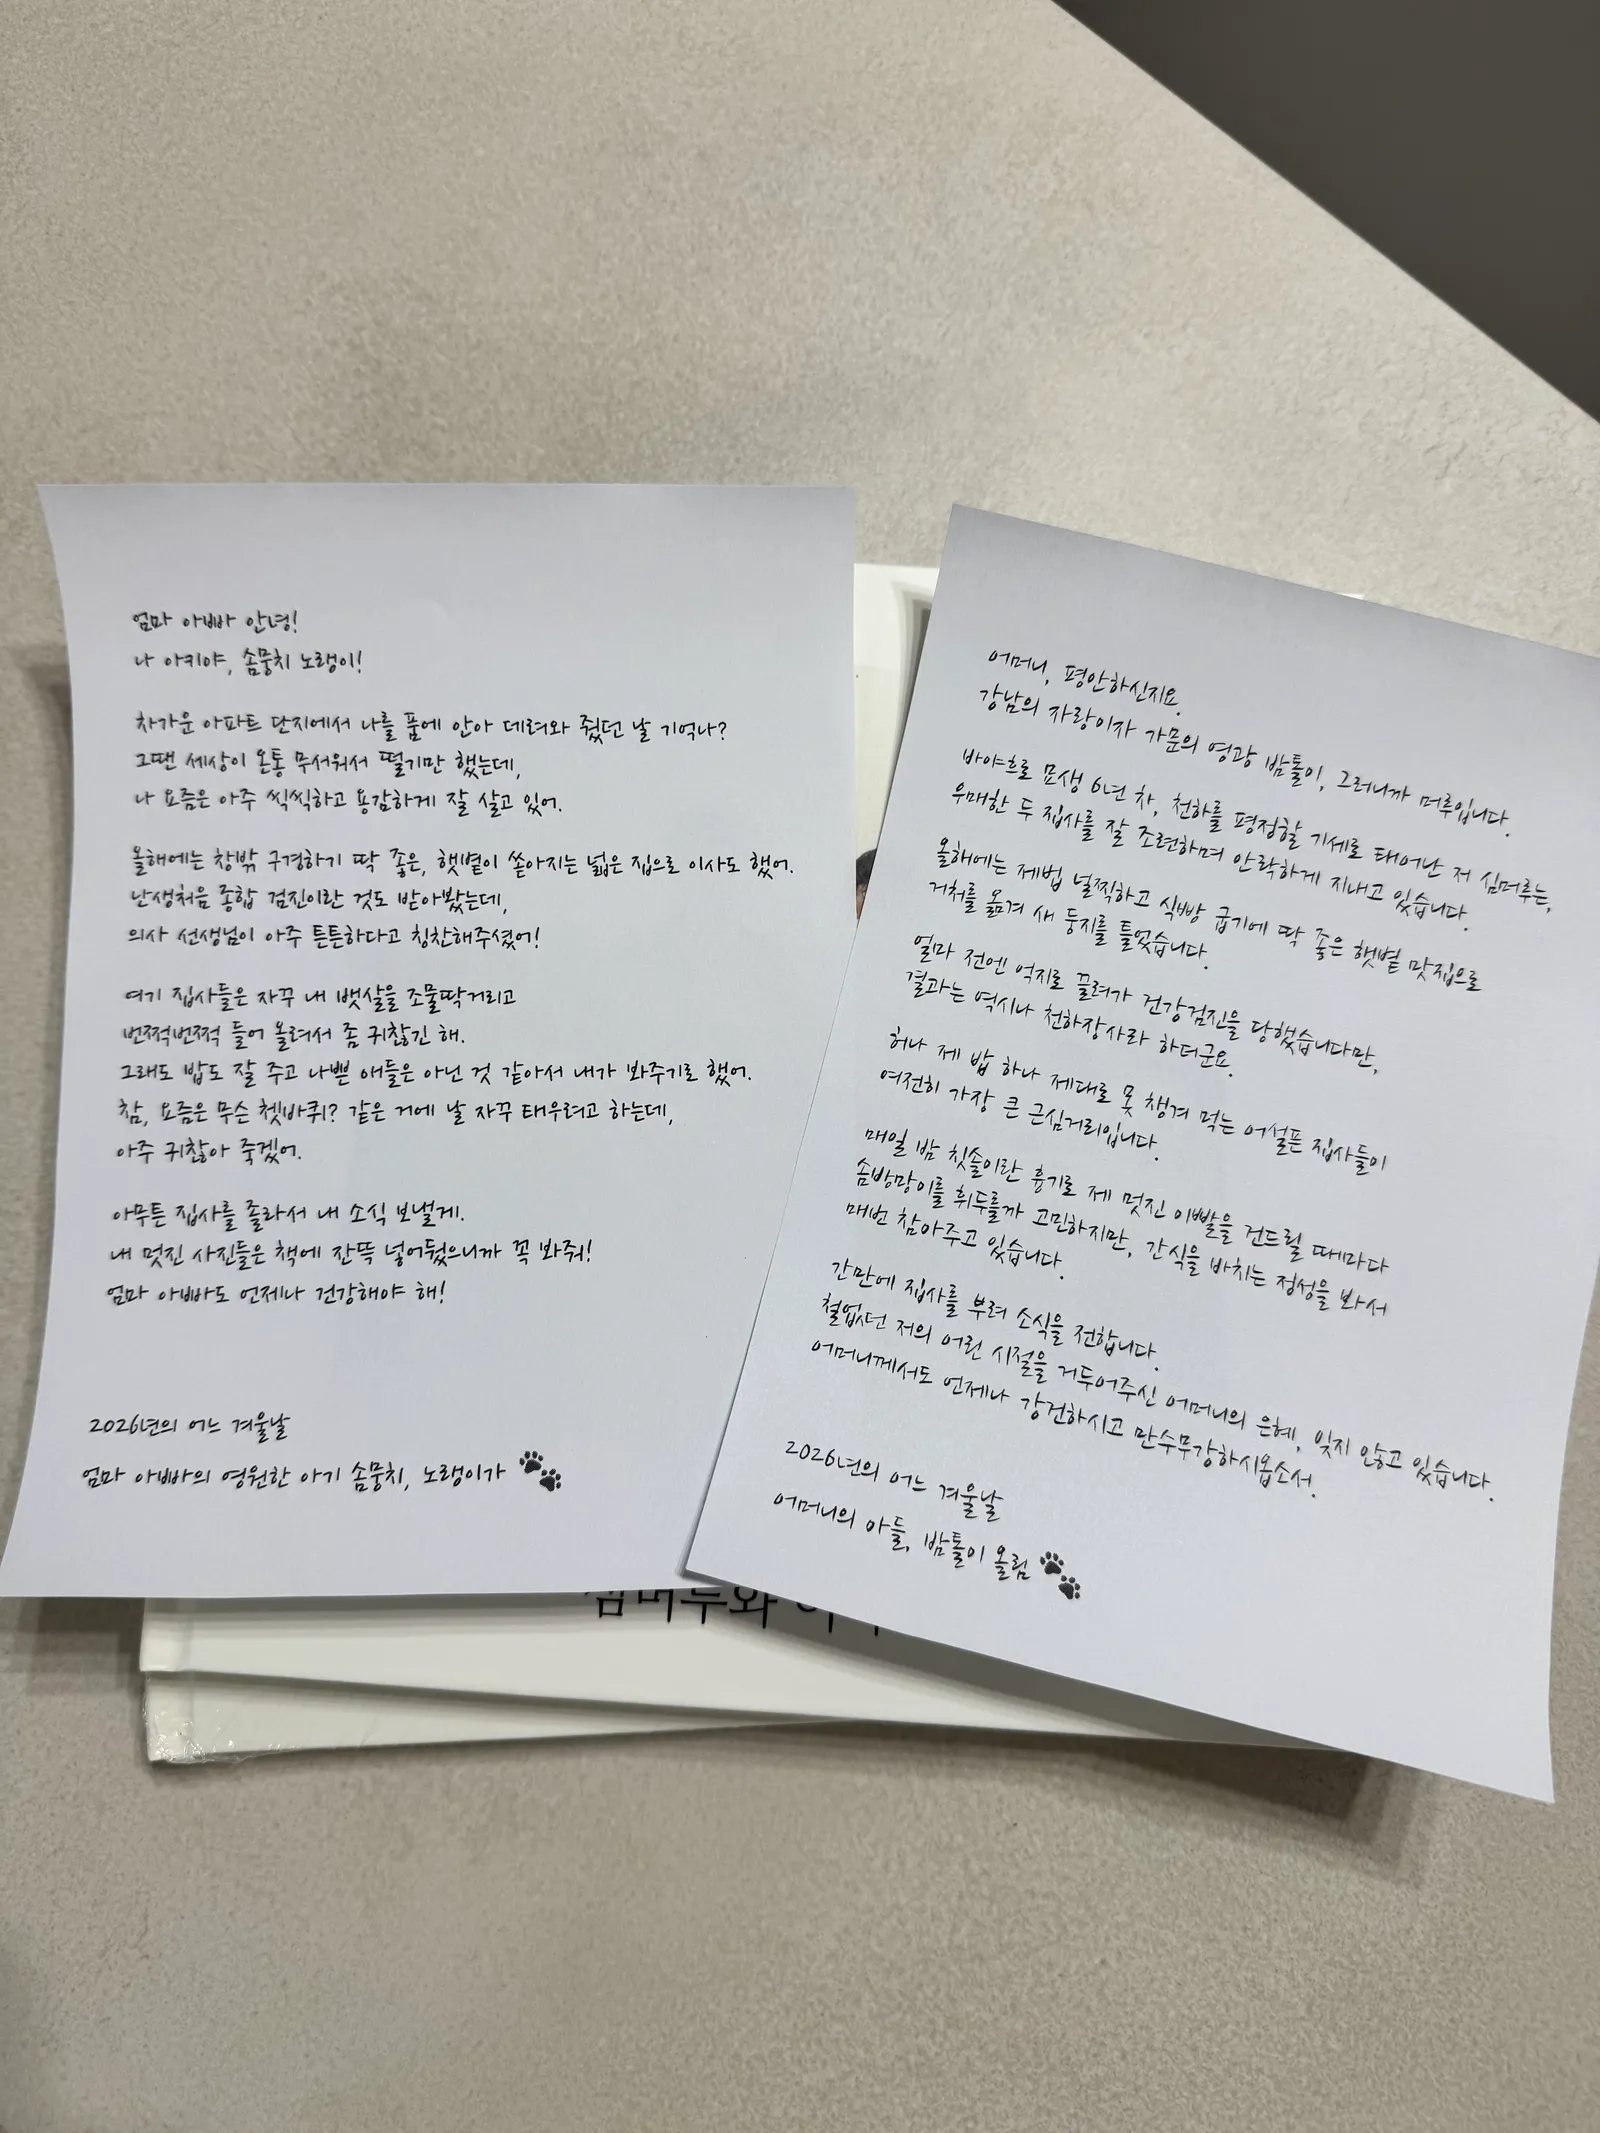 엄마 아빠 안녕!
나 아키야, 솜뭉치 노랭이!
차가운 아파트 단지에서 나를 품에 안아 데려와 줬던 날 기억나?
그땐 세상이 온통 무서워서 떨기만 했는데,
나 요즘은 아주 씩씩하고 용감하게 잘 살고 있어.
올해에는 창밖 구경하기 딱 좋은, 햇볕이 쏟아지는 넓은 집으로 이사도 했어.
난생처음 종합 검진이란 것도 받아봤는데,
의사 선생님이 아주 튼튼하다고 칭찬해주셨어!
여기 집사들은 자꾸 내 뱃살을 조물딱거리고
번쩍번쩍 들어 올려서 좀 귀찮긴 해.
그래도 밥도 잘 주고 나쁜 애들은 아닌 것 같아서 내가 봐주기로 했어.
참, 요즘은 무슨 쳇바퀴? 같은 거에 날 자꾸 태우려고 하는데,
아주 귀찮아 죽겠어.
아무튼 집사를 졸라서 내 소식 보낼게.
내 멋진 사진들은 책에 잔뜩 넣어뒀으니까 꼭 봐줘!
엄마 아빠도 언제나 건강해야 해!
2026년의 어느 겨울날
엄마 아빠의 영원한 아기 솜뭉치, 노랭이가
어머니, 평안하신지요.
강남의 자랑이자 가문의 영광 밤톨이, 그러니까 머루입니다.
바야흐로 묘생 6년 차, 천하를 평정할 기세로 태어난 저 심머루는,
우매한 두 집사를 잘 조련하며 안락하게 지내고 있습니다.
올해에는 제법 널찍하고 식빵 굽기에 딱 좋은 햇볕 맛집으로
거처를 옮겨 새 둥지를 틀었습니다.
얼마 전엔 억지로 끌려가 건강검진을 당했습니다만,
결과는 역시나 천하장사라 하더군요.
허나 제 밥 하나 제대로 못 챙겨 먹는 어설픈 집사들이
여전히 가장 큰 근심거리입니다.
매일 밤 칫솔이란 흉기로 제 멋진 이빨을 건드릴 때마다
솜방망이를 휘두를까 고민하지만, 간식을 바치는 정성을 봐서
매번 참아주고 있습니다.
간만에 집사를 부려 소식을 전합니다.
철없던 저의 어린 시절을 거두어주신 어머니의 은혜, 잊지 않고 있습니다.
어머니께서도 언제나 강건하시고 만수무강하시옵소서.
2026년의 어느 겨울날
어머니의 아들, 밤톨이 올림